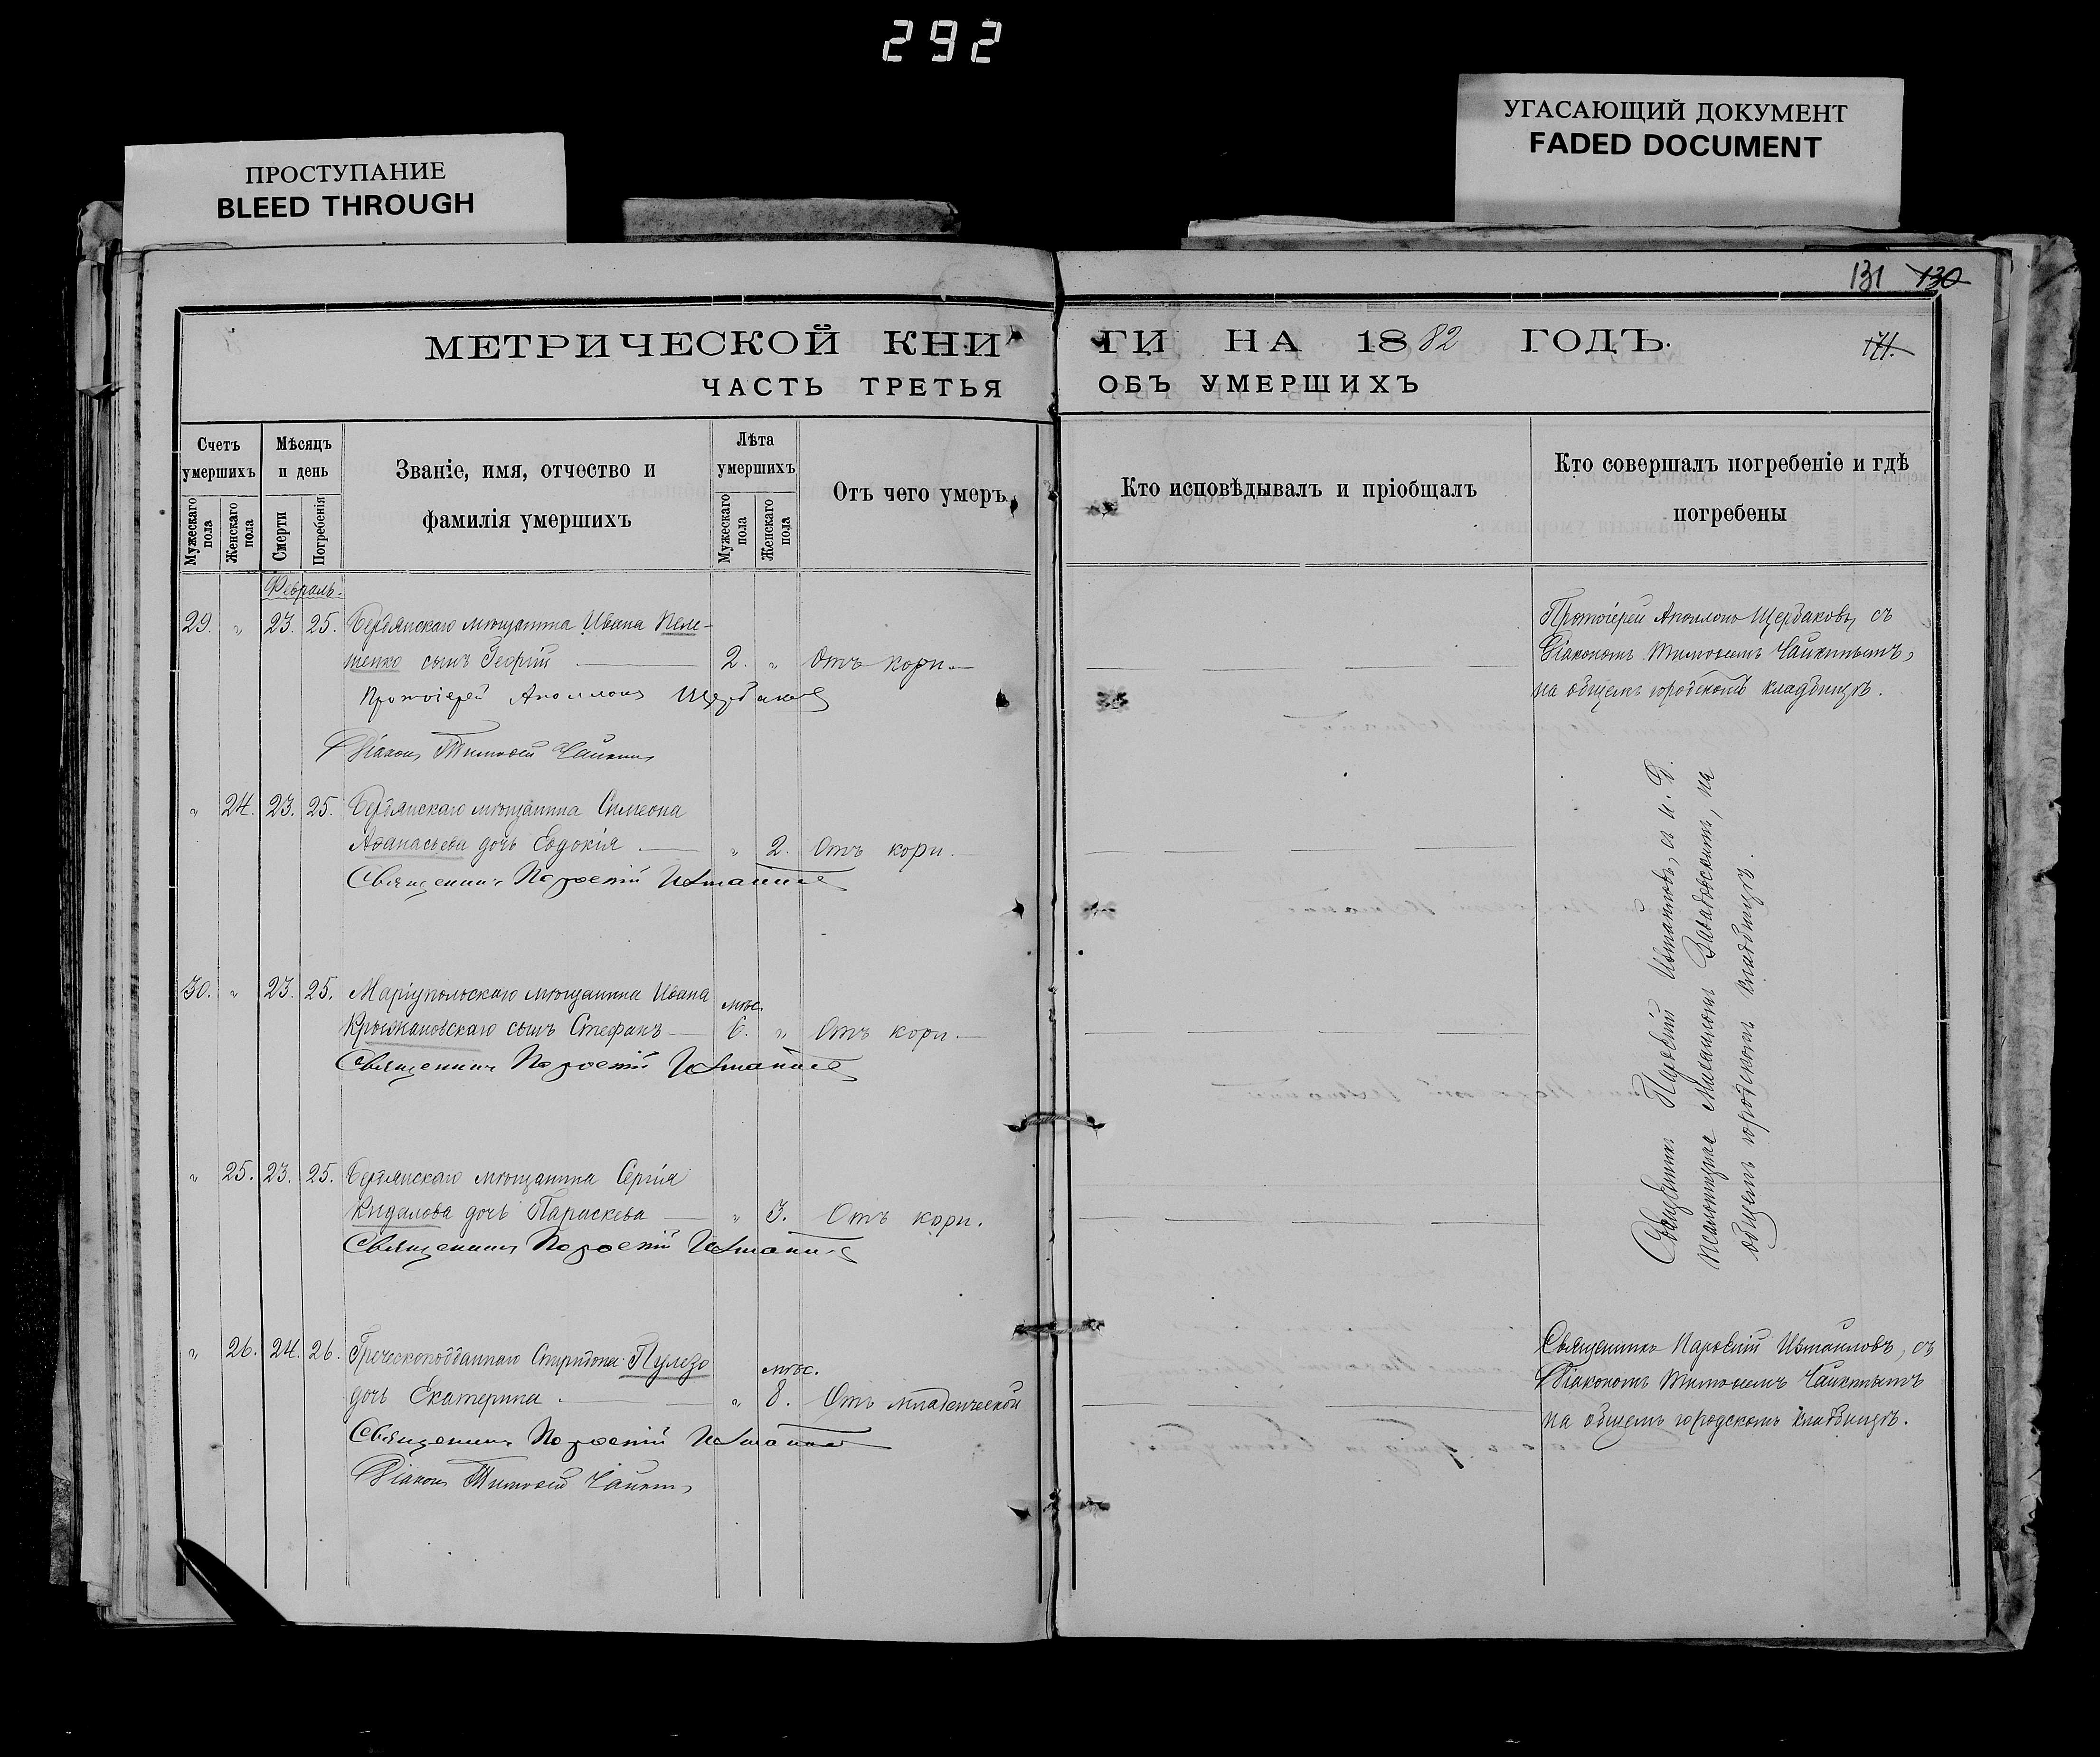 292
ПРОСТУПАНИЕ
BLEED THROUGH
УГАСАЮЩИЙ ДОКУМЕНТ
FADED DOCUMENT
131 130
МЕТРИЧЕСКОЙ КНИ
ГИ НА 1882 ГОДЪ.
171.
ЧАСТЬ ТРЕТЬЯ
ОБЪ УМЕРШИХЪ
Счетъ умершихъ
Мужескаго пола
Женскаго пола
Мѣсяцъ и день
Смерти
Погребенія
Званіе, имя, отчество и
фамилія умершихъ
Лѣта умершихъ
Мужескаго пола
Женскаго пола
Отъ чего умеръ
Кто исповѣдывалъ и пріобщалъ
Кто совершалъ погребеніе и гдѣ
погребены
Февраль.
29. " 23. 25. Бердянскаго мѣщанина Ивана Пеле-
тенко сынъ Георгій 2. " Отъ кори.
Протоіерей Аполлонъ Щербаковъ
Діаконъ Тимоѳей Чайкинъ
Протоіерей Аполлонъ Щербаковъ, съ
Діакономъ Тимоѳеемъ Чайкинымъ,
на общемъ городскомъ кладбищѣ.
" 24. 23. 25. Бердянскаго мѣщанина Симеона
Аѳанасьева дочь Евдокія " 2. Отъ кори.
Священникъ Измаиловъ
30. " 23. 25. Маріупольскаго мѣщанина Ивана
мѣс.
Крыжановскаго сынъ Стефанъ 6. " Отъ кори.
Священникъ Измаиловъ
" 25. 23. 25. Бердянскаго мѣщанина Сергія
Кидалова дочь Параскева " 3. Отъ кори.
Священникъ Измаиловъ
Священникъ Измаиловъ, съ и. д.
псаломщика Завадовскимъ, на
общемъ городскомъ кладбищѣ.
" 26. 24. 26. Греческоподданнаго Спиридона Пулезо
мѣс.
дочь Екатерина " 8. Отъ младенческой
Священникъ Измаиловъ
Діаконъ Тимоѳей Чайкинъ
Священникъ Измаиловъ, съ
Діакономъ Тимоѳеемъ Чайкинымъ
на общемъ городскомъ кладбищѣ.